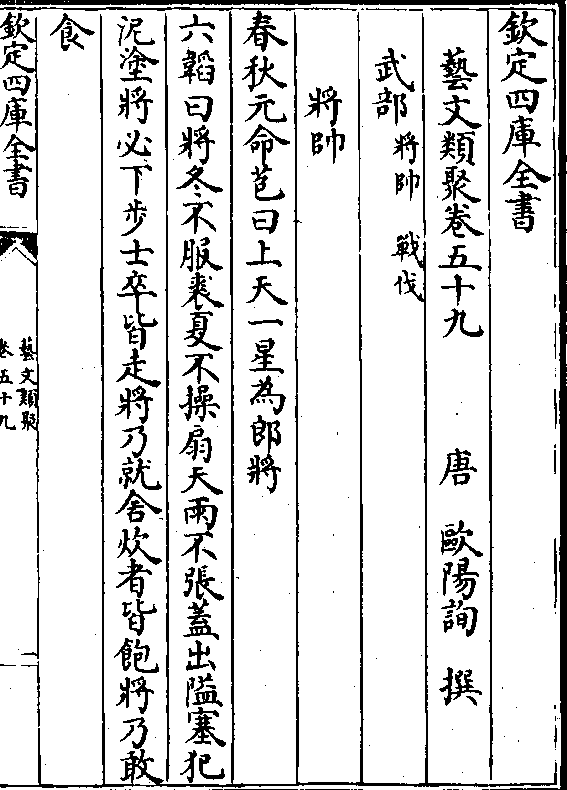 欽定四庫全書
藝文類聚卷五十九　唐　歐陽詢　撰
武部將帥　戰伐
將帥
春秋元命苞曰上天一星為郎將
六韜曰將冬不服裘夏不操扇天雨不張蓋出隘塞犯
泥塗將必下步士卒皆走將乃就舍炊者皆飽將乃敢
食
欽定四庫全書
藝文類聚
卷五十九
二